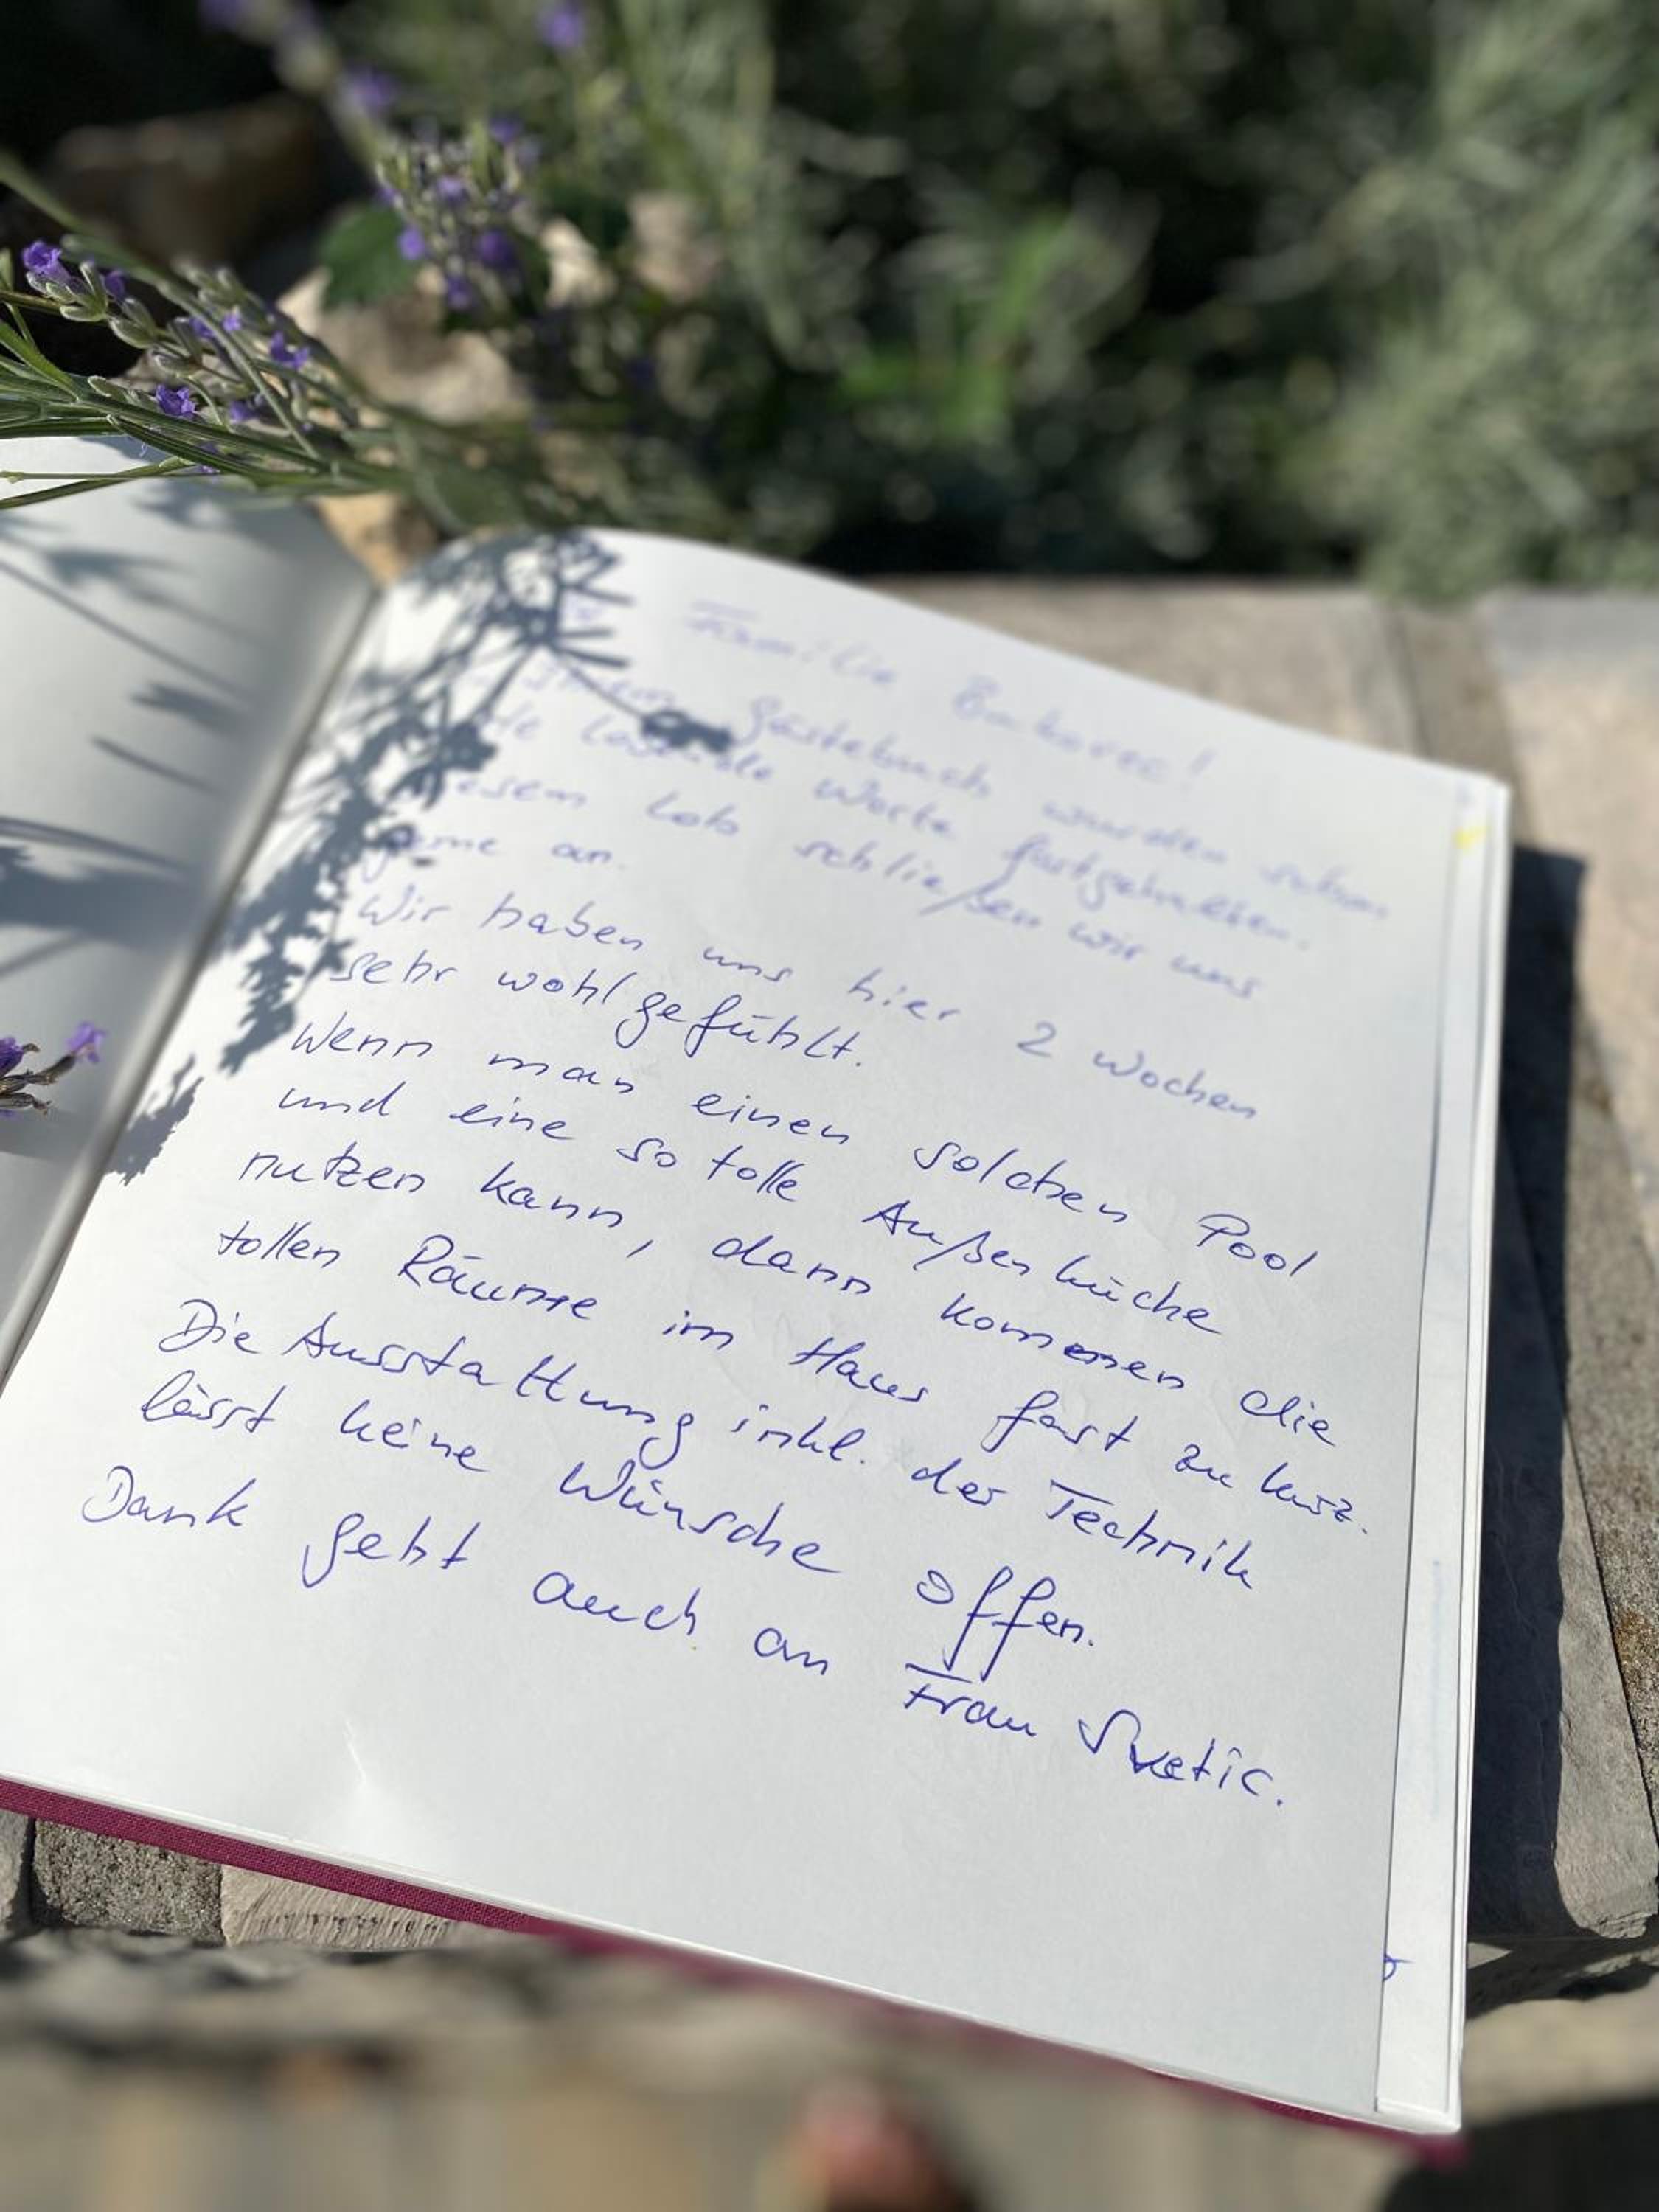 Familie
Gästebuch wurden schon
lobende Worte festgehalten.
diesem Lob schließen wir uns
gerne an.
Wir haben uns hier 2 Wochen
sehr wohl gefühlt.
Wenn man einen solchen Pool
und eine so tolle Außenküche
nutzen kann, dann kommen die
tollen Räume im Haus fast zu kurz.
Die Ausstattung inkl. der Technik
lässt keine Wünsche offen.
Dank geht auch an Frau Svetic.